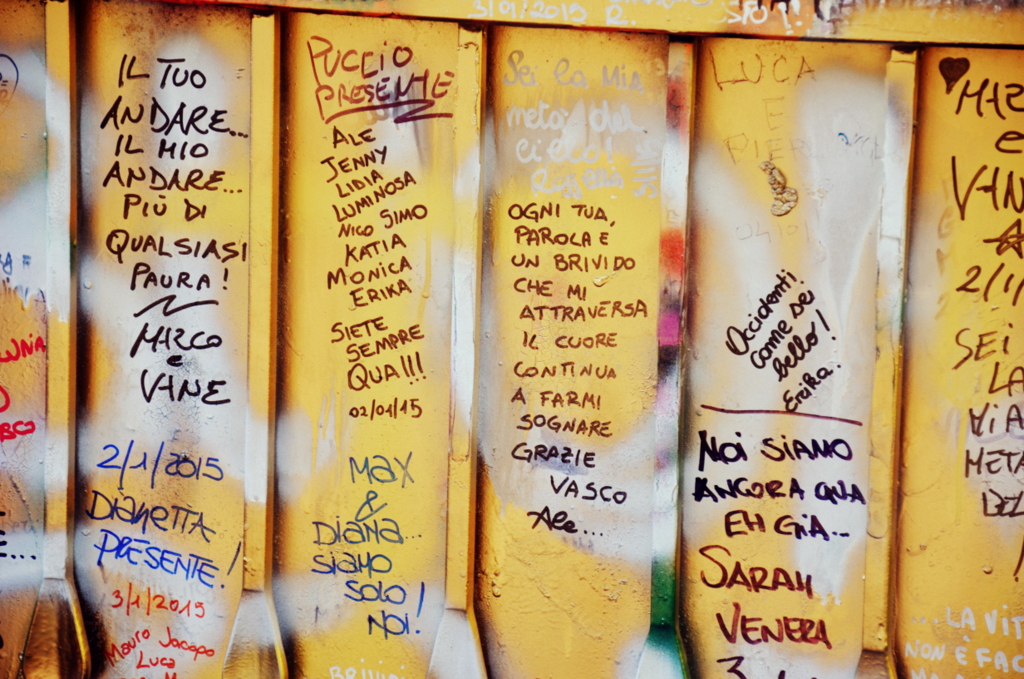 3/01/2015 R.
IL TUO
ANDARE...
IL MIO
ANDARE...
PIÙ DI
QUALSIASI
PAURA!
MARCO
e
VANE
2/1/2015
DIANETTA
PRESENTE!
3/1/2015
Mauro Jacopo
Luca
PUCCIO
PRESENTE
ALE
JENNY
LIDIA
LUMINOSA
NICO SIMO
KATIA
MONICA
ERIKA
SIETE
SEMPRE
QUA!!!
02/01/15
MAX
&
DIANA...
SIAMO
SOLO
NOI!
Sei la mia
metà del
cielo!
OGNI TUA,
PAROLA E
UN BRIVIDO
CHE MI
ATTRAVERSA
IL CUORE
CONTINUA
A FARMI
SOGNARE
GRAZIE
VASCO
Ale...
LUCA
E
Occidenti!
Come sei
bello!
Erika!
NOI SIAMO
ANCORA QUA
EH GIÀ...
SARAH
VENERA
3
MAR
e
VANE
2/1/
SEI
LA
MIA
META
DEL
...LA VIT
NON È FAC